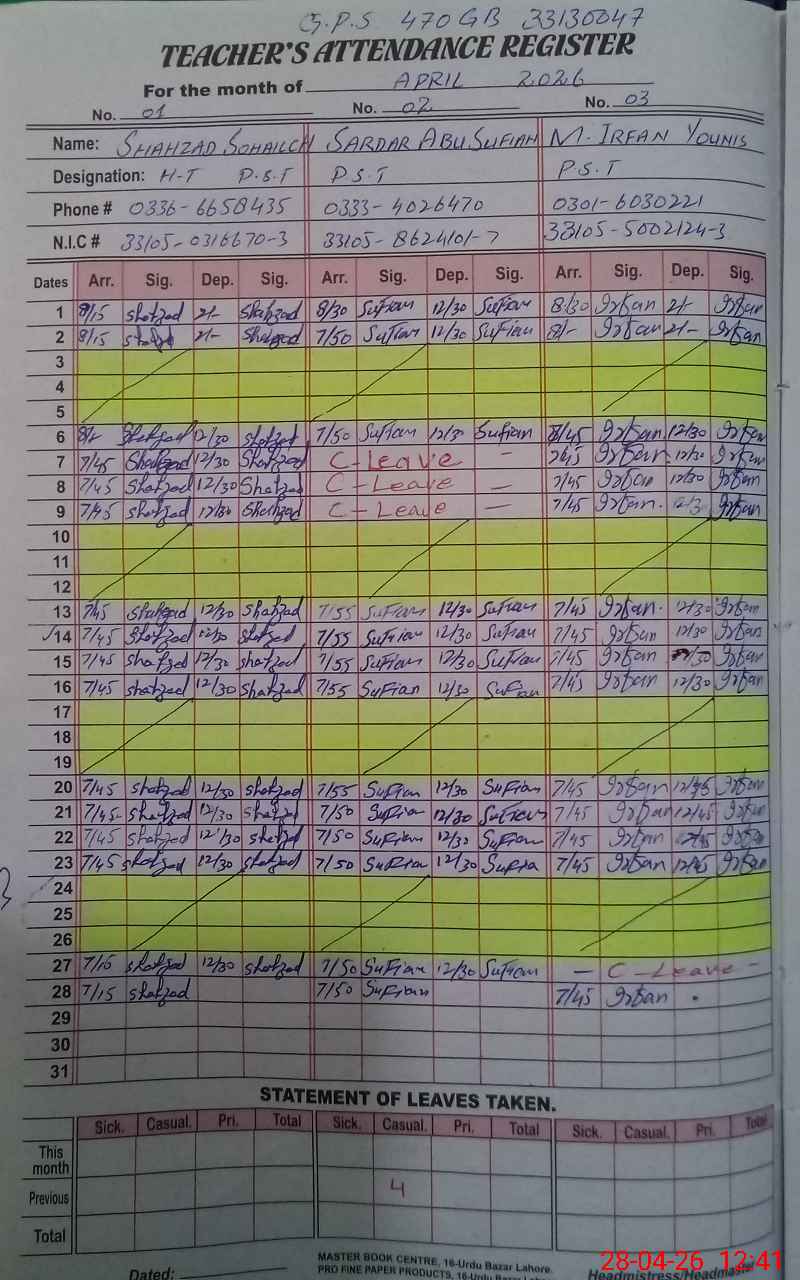 G.P.S 470 GB 33130047
TEACHER'S ATTENDANCE REGISTER
For the month of APRIL 2026
No. 01 No. 02 No. 03
Name: SHAHZAD SOHAIL SARDAR ABU SUFIAN M. IRFAN YOUNIS
Designation: H-T P.S.T P.S.T P.S.T
Phone # 0336-6658435 0333-4026470 0301-6030221
N.I.C # 33105-0316670-3 33105-8624101-7 33105-5002124-3
Dates Arr. Sig. Dep. Sig. Arr. Sig. Dep. Sig. Arr. Sig. Dep. Sig.
1 8/15 Shahzad 2/- Shahzad 8/30 Sufian 12/30 Sufian 8/30 Irfan 2/- Irfan
2 8/15 Shahzad 2/- Shahzad 7/50 Sufian 12/30 Sufian 8/- Irfan 2/- Irfan
3
4
5
6 Shahzad 12/30 Shahzad 7/50 Sufian 12/30 Sufian 7/45 Irfan 12/30 Irfan
7 7/45 Shahzad 12/30 Shahzad C-Leave — 7/45 Irfan 12/30 Irfan
8 7/45 Shahzad 12/30 Shahzad C-Leave — 7/45 Irfan 12/30 Irfan
9 7/45 Shahzad 12/30 Shahzad C-Leave — 7/45 Irfan 12/30 Irfan
10
11
12
13 7/45 Shahzad 12/30 Shahzad 7/55 Sufian 12/30 Sufian 7/45 Irfan 12/30 Irfan
14 7/45 Shahzad 12/30 Shahzad 7/55 Sufian 12/30 Sufian 7/45 Irfan 12/30 Irfan
15 7/45 Shahzad 12/30 Shahzad 7/55 Sufian 12/30 Sufian 7/45 Irfan 12/30 Irfan
16 7/45 Shahzad 12/30 Shahzad 7/55 Sufian 12/30 Sufian 7/45 Irfan 12/30 Irfan
17
18
19
20 7/45 Shahzad 12/30 Shahzad 7/55 Sufian 12/30 Sufian 7/45 Irfan 12/45 Irfan
21 7/45 Shahzad 12/30 Shahzad 7/50 Sufian 12/30 Sufian 7/45 Irfan 12/45 Irfan
22 7/45 Shahzad 12/30 Shahzad 7/50 Sufian 12/30 Sufian 7/45 Irfan 12/45 Irfan
23 7/45 Shahzad 12/30 Shahzad 7/50 Sufian 12/30 Sufian 7/45 Irfan 12/45 Irfan
24
25
26
27 7/10 Shahzad 12/30 Shahzad 7/50 Sufian 12/30 Sufian — C-Leave -
28 7/15 Shahzad 7/50 Sufian 7/45 Irfan
29
30
31
STATEMENT OF LEAVES TAKEN.
Sick. Casual. Pri. Total Sick. Casual. Pri. Total Sick. Casual. Pri. Total
This month
Previous 4
Total
Dated: MASTER BOOK CENTRE, 16-Urdu Bazar Lahore.
PRO FINE PAPER PRODUCTS, 16-Urdu Bazar Lahore. Headmistress/Headmaster
28-04-26 12:41